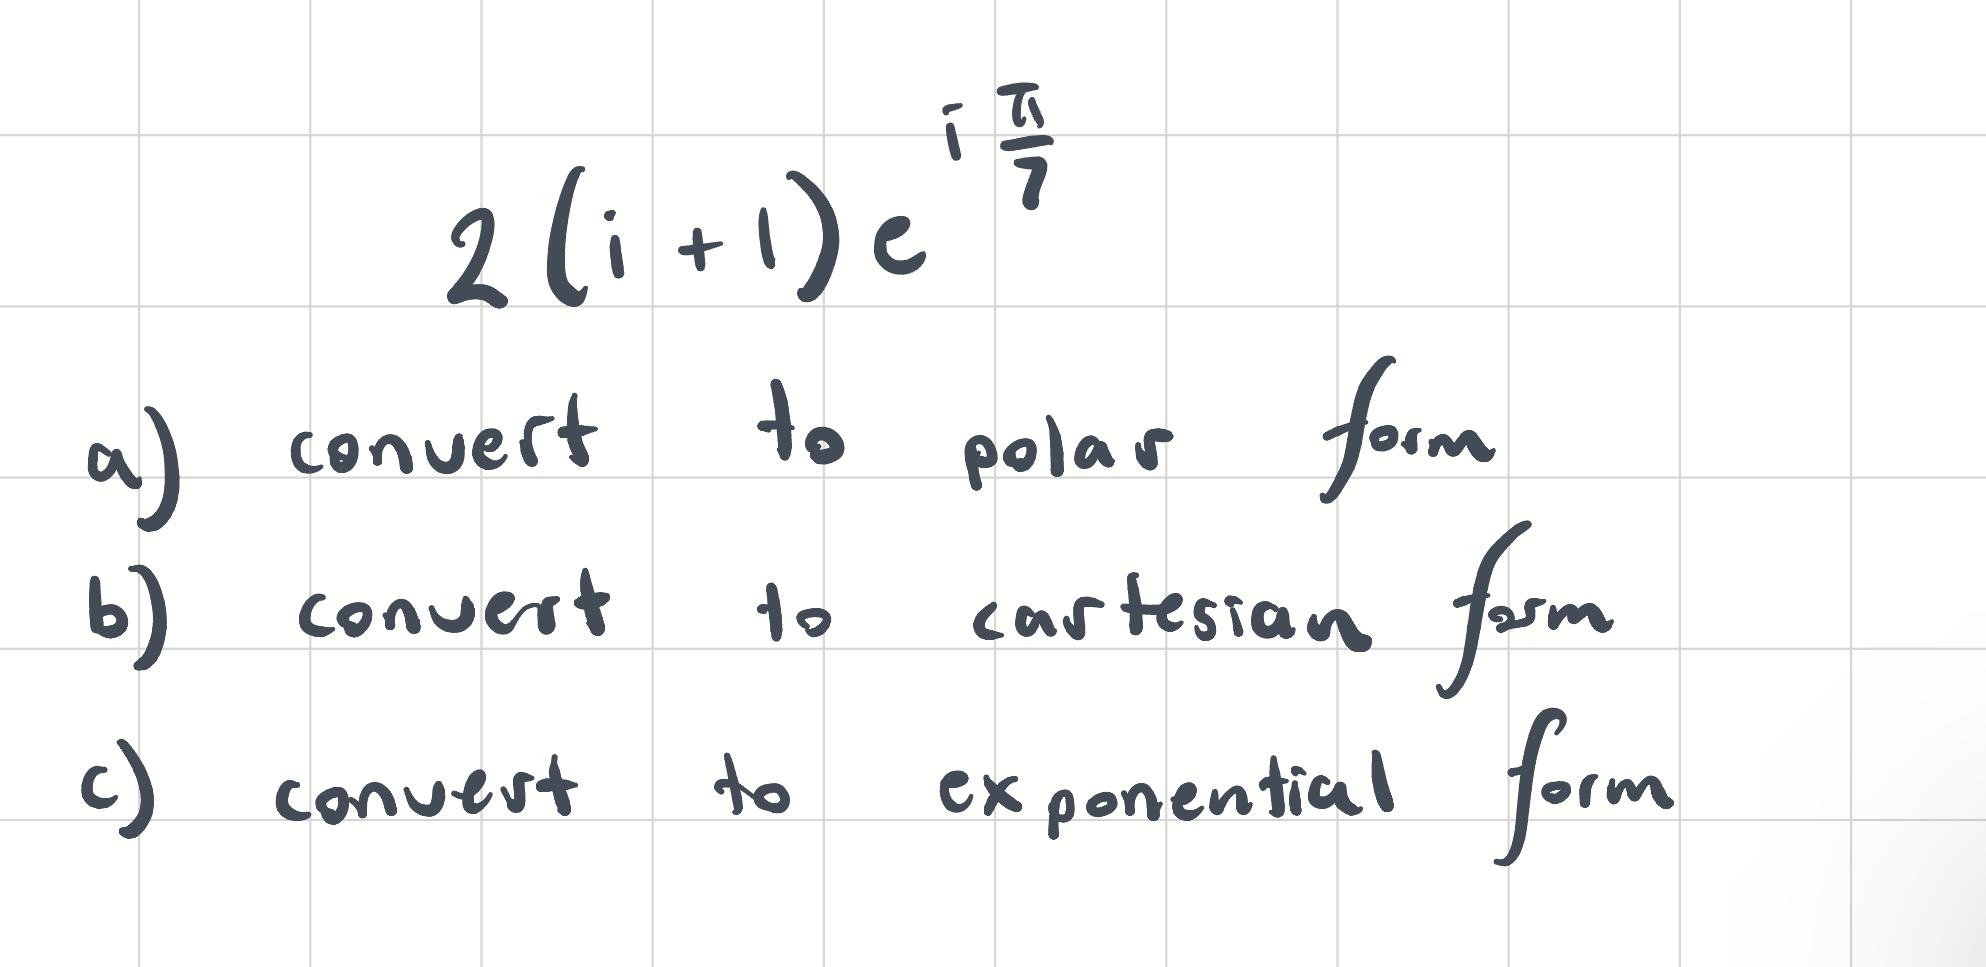 2(i + 1)e^{i π/7}
a) convert to polar form
b) convert to cartesian form
c) convert to exponential form